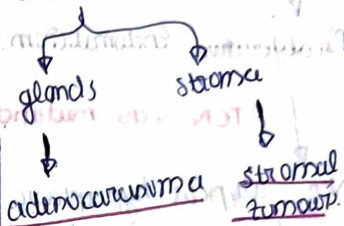 glands
stroma
adenocarcinoma
stromal
tumour.